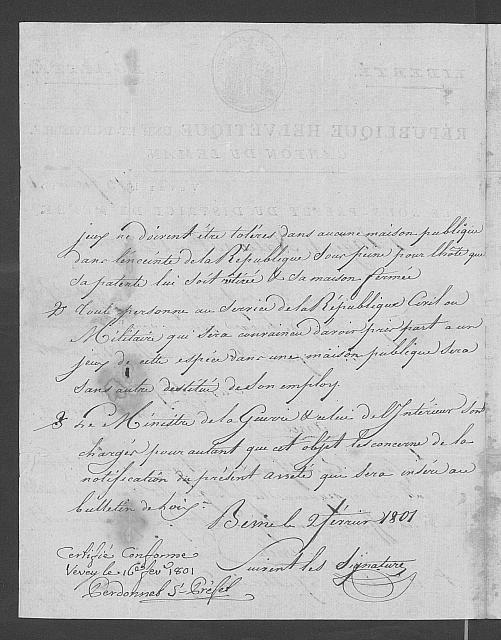 LIBERTÉ
RÉPUBLIQUE HELVÉTIQUE UNE ET INDIVISIBLE
CANTON DU LEMAN
jeux ne doivent être tolérés dans aucune maison publique
dans l'enceinte de la République sous peine pour l'hôte que
sa patente lui soit rétiré & sa maison fermée
2 Toute personne au service de la République Civil ou
Militaire qui sera convaincu d'avoir pris part a un
jeux de cette espèce dans une maison publique sera
sans autre destitué de son employ.
3 Le Ministre de la Guerre & celui de l'Intérieur sont
chargés pour autant que cet objet les concerne de la
notification du présent arreté qui sera inséré au
bulletin de Loix.
Berne le 2 février 1801
Suivent les Signature
Certifié Conforme
Vevey le 16 fevr 1801
Perdonnet Ss Préfet